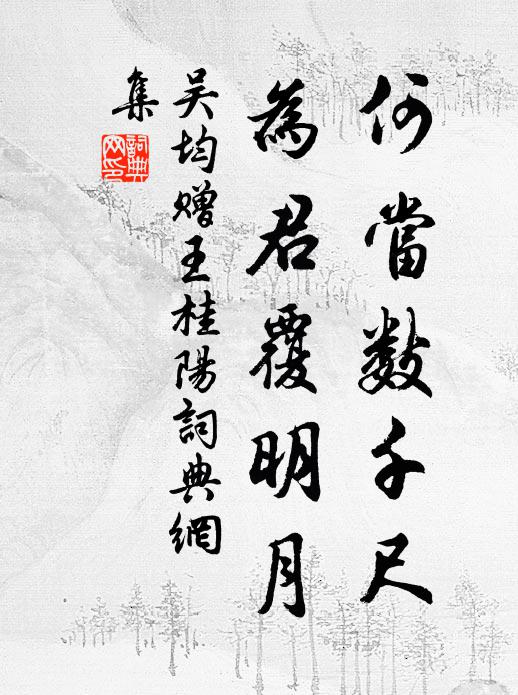 何當數千尺
為君覆明月
吴均贈王桂陽詞典網
集
詞典
网印